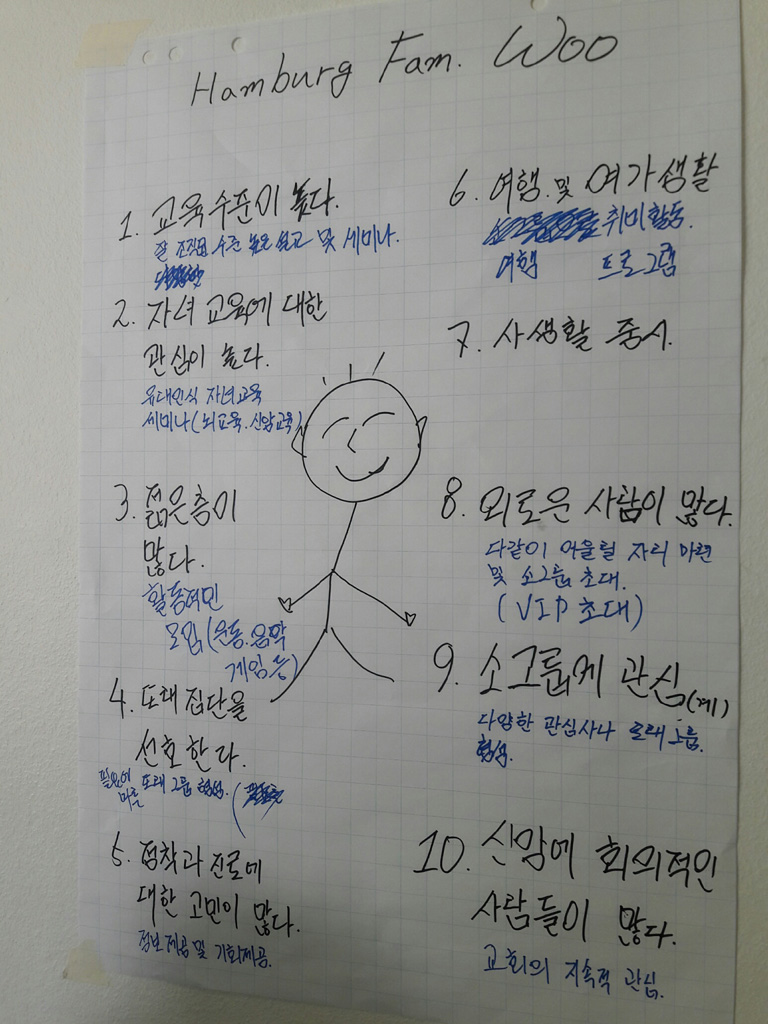 Hamburg Fam. Woo
1. 교육수준이 높다.
잘 조직된 수준 높은 설교 및 세미나.
2. 자녀 교육에 대한
관심이 높다.
유대인식 자녀교육
세미나(뇌교육.신앙교육)
3. 젊은층이
많다.
활동적인
모임(운동.음악
게임 등)
4. 또래 집단을
선호한다.
필요에
따른 또래 그룹 형성.
5. 정착과 진로에
대한 고민이 많다.
정보제공 및 기회제공.
6. 여행 및 여가생활
취미활동.
여행 프로그램
7. 사생활 중시.
8. 외로운 사람이 많다.
다같이 어울릴 자리 마련
및 소그룹 초대.
(VIP 초대)
9. 소그룹에 관심(계)
다양한 관심사나 또래그룹
형성.
10. 신앙에 회의적인
사람들이 많다.
교회의 지속적 관심.